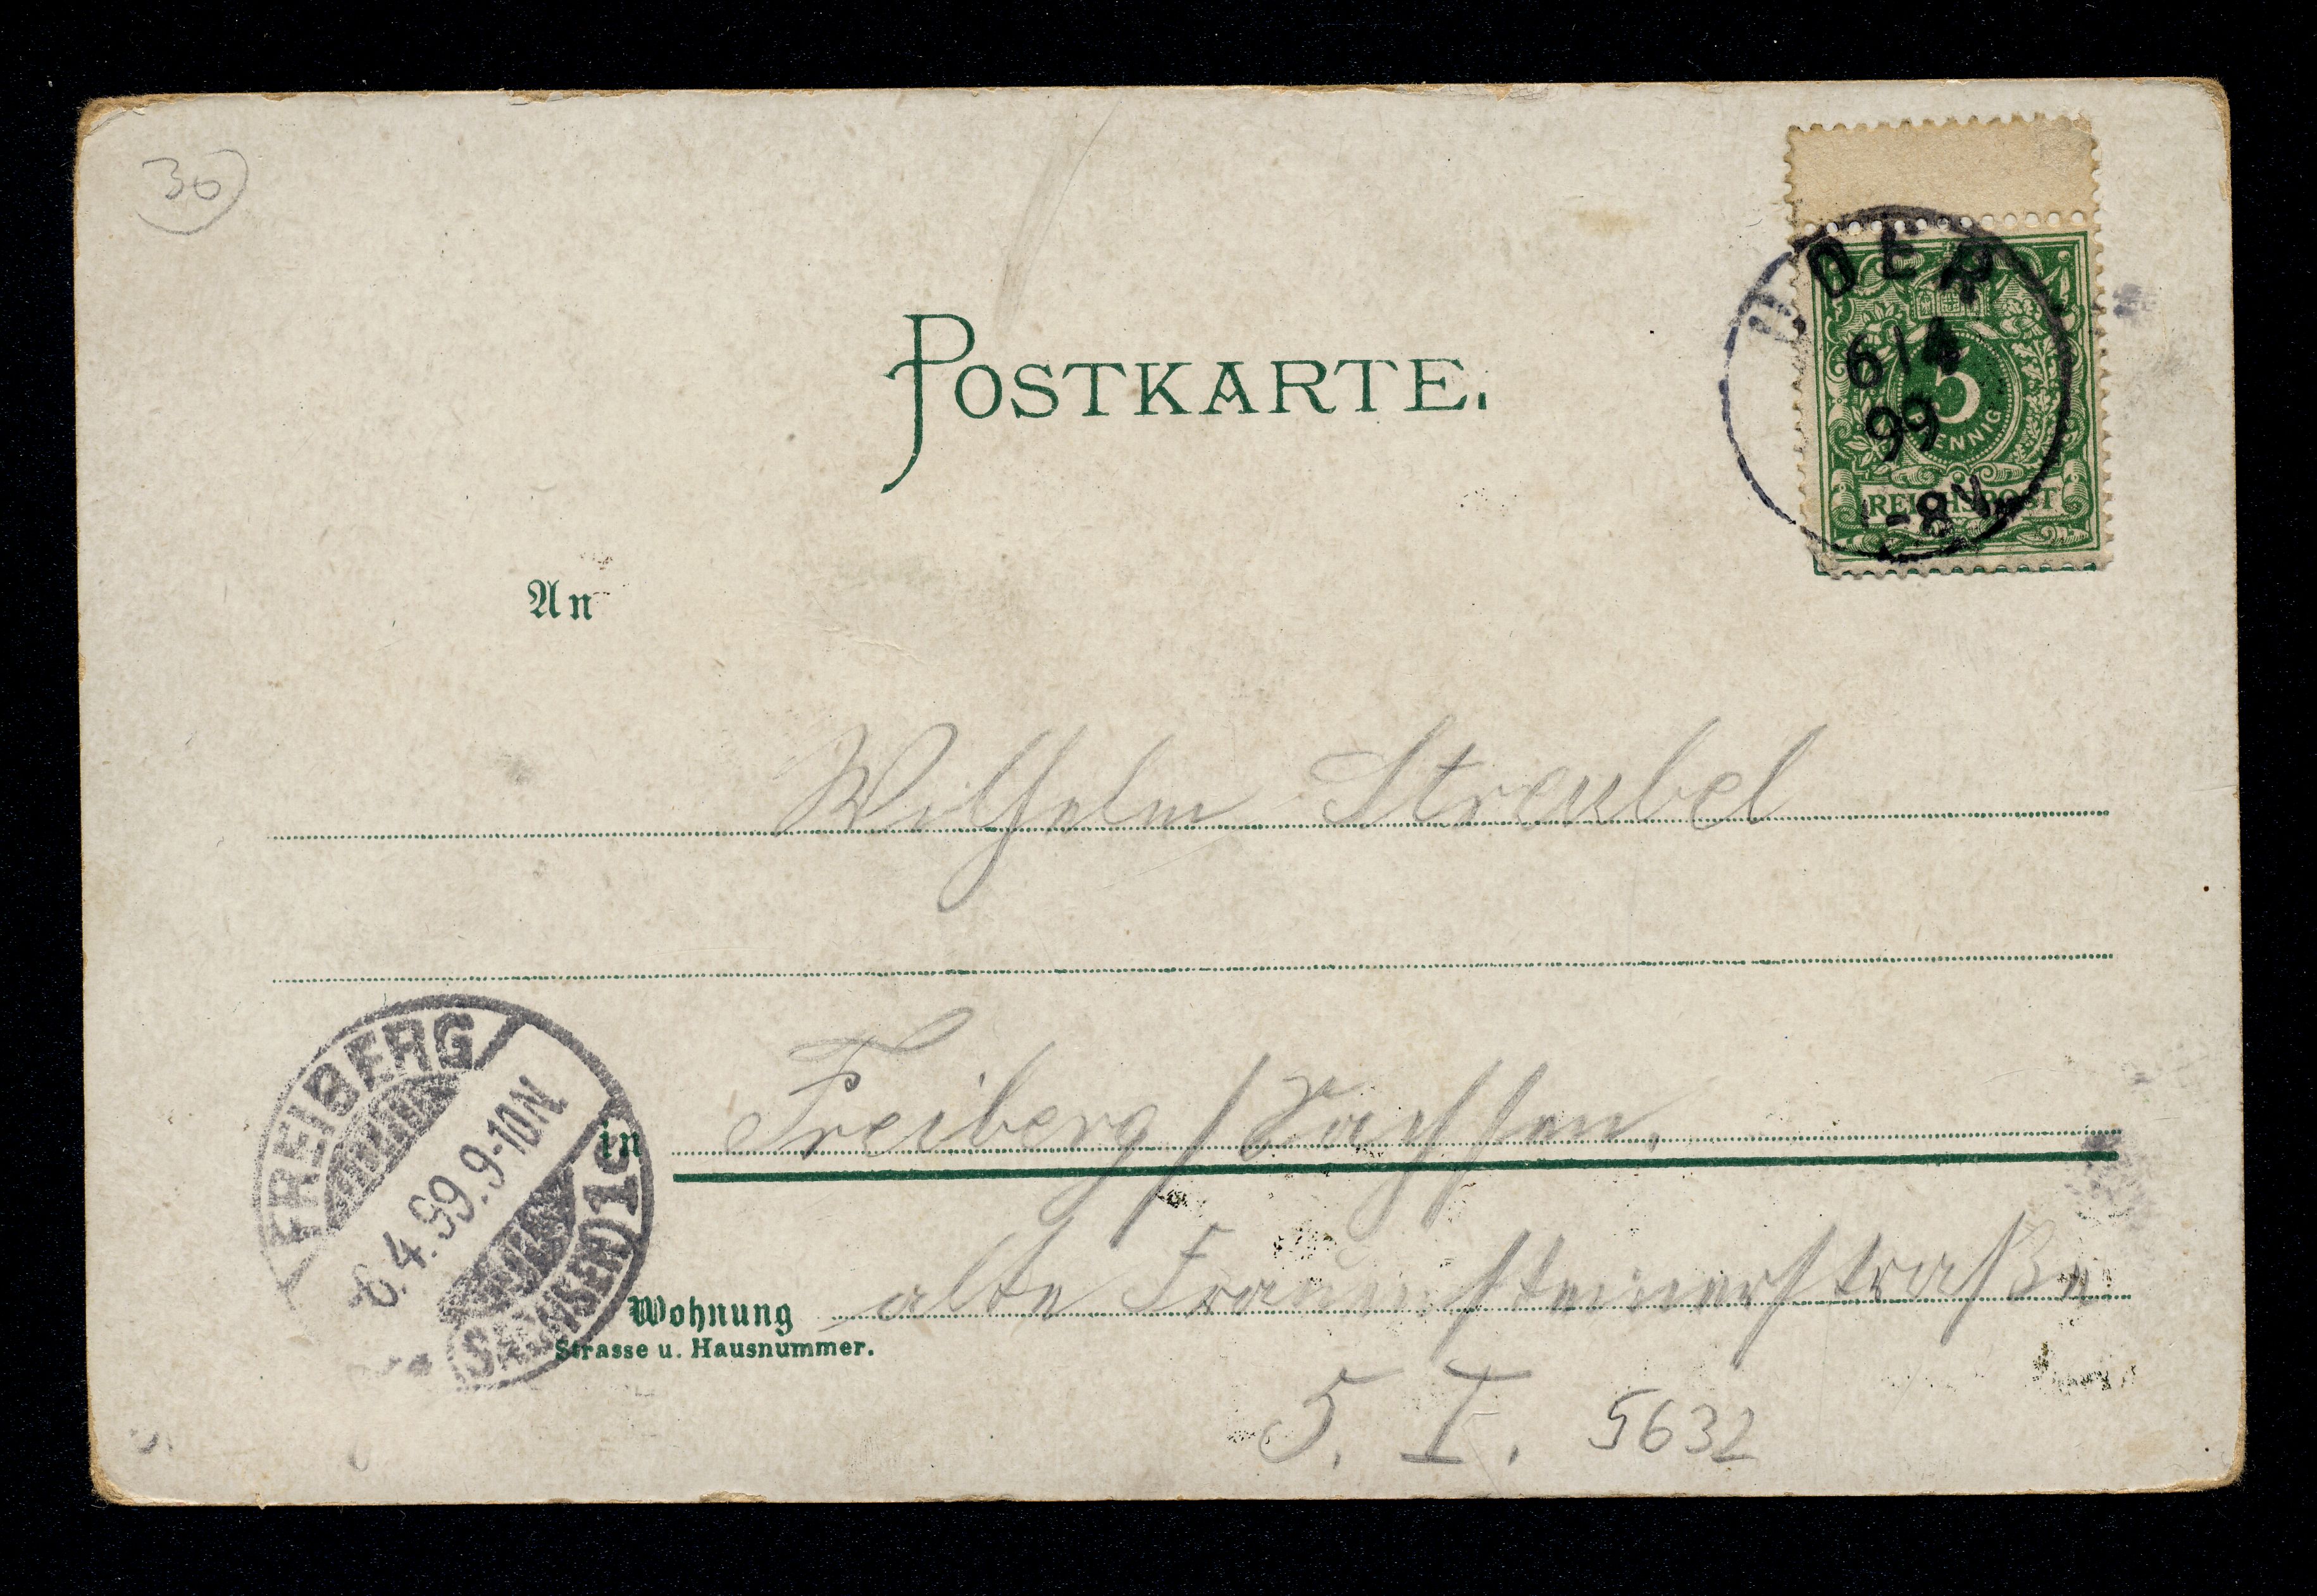 30
POSTKARTE.
UDER
6/4
99
-8N
5
PFENNIG
REICHSPOST
An
Wilhelm Streubel
in Freiberg / Sachsen.
FREIBERG
6.4.99.9-10N.
(SACHSEN) 1c
Wohnung alte Frauensteinerstraße
Strasse u. Hausnummer.
5. I. 5632